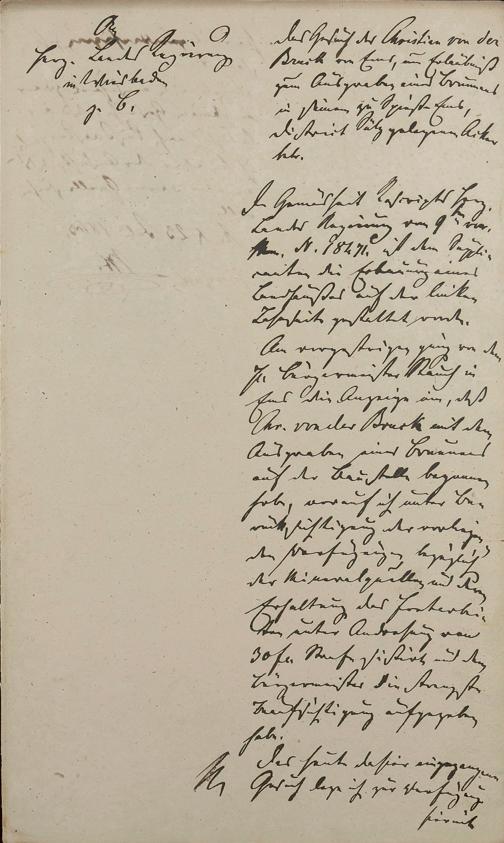 An
Herz. Landes Regierung
in Wiesbaden
z. B.
Das Gesuch des Christian von der
Bruck von Ems, um Erlaubniß
zum Ausgraben eines Brunnens
in seinem zu Spieß-Ems,
District Sülz gelegenen Acker
betr.
In Gemäsheit Rescripts Herz.
Landes Regierung vom 9ten
N. 18471. ist dem Suppli-
canten die Erbauung eines
Landhauses auf der linken
Lahnseite gestattet worden.
Am vorgestrigen ging von dem
Hr. Bürgermeister Rauch in
Ems die Anzeige ein, daß
Chr. von der Bruck mit dem
Ausgraben eines Brunnens
auf der Baustelle begonnen
habe, worauf ich unter Be-
rücksichtigung der vorliegen-
den Verfügungen bezüglich
der Mineralquellen und dem
das Fortarbei-
ten unter Androhung von
30 fl. Strafe sistirt und dem
Bürgermeister die strengste
Beaufsichtigung aufgegeben
habe.
Das heute dahier eingegangene
Gesuch lege ich zur Verfügung
hierneben